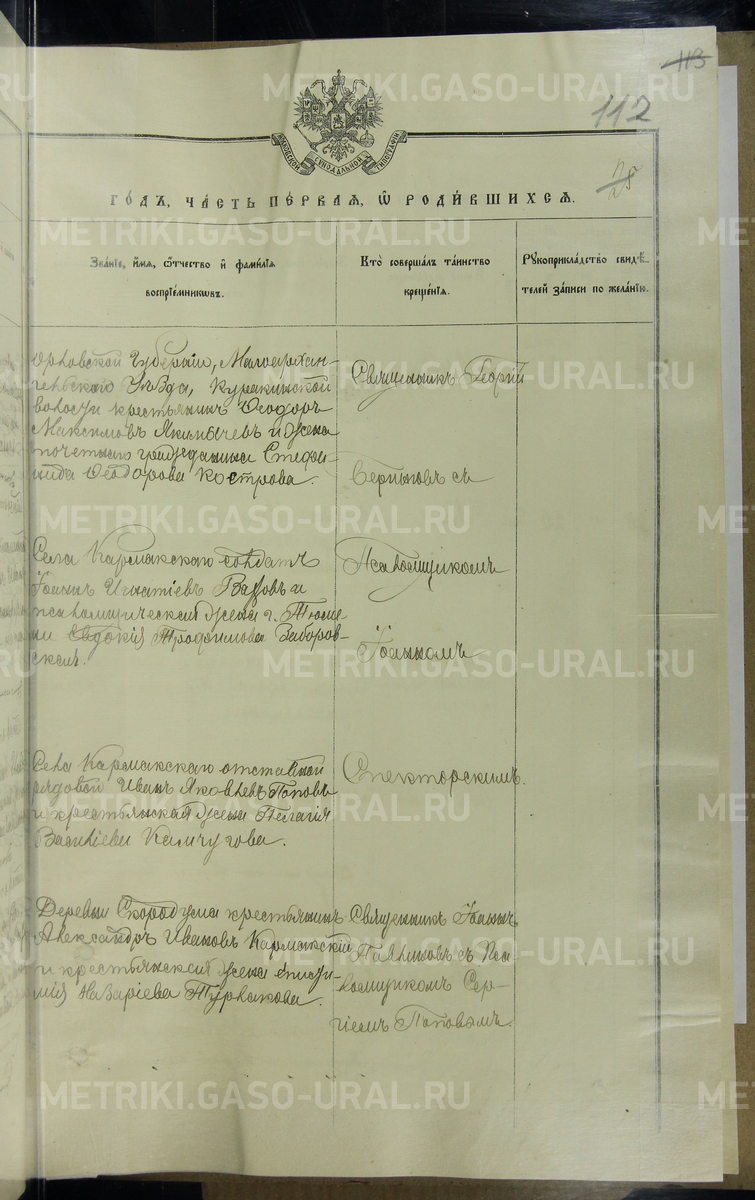 113
112
МОСКОВСКОЙ СѴНОДАЛЬНОЙ ТИПОГРАФІИ
25
ГО́ДЪ, ЧА́СТЬ ПЕ́РВАЯ, Ѡ҆ РОДИ́ВШИХСЯ.
Зва́ніе, и҆́мя, ѻ҆́тчество и҆ фами́лія
воспріе́мниковъ.
Кто̀ соверша́лъ та́инство
креще́нія.
Рꙋкоприкла́дство свидѣ́-
телей за́писи по жела́нію.
Орловской Губерніи, Малоархан-
гельскаго Уѣзда, Куракинской
волости крестьянинъ Ѳеодоръ
Максимовъ Якимычевъ и жена
почетнаго гражданина Стефа-
нида Ѳеодорова Кострова.
Священникъ Георгій
Серпыновъ съ
Села Кармакскаго солдатъ
Іоаннъ Игнатіевъ и
псаломщическая жена г. Тюме-
ни Евдокія Трофимова Заборов-
ская.
Псаломщикомъ
Іоанномъ
Села Кармакскаго отставной
рядовой Иванъ Яковлевъ Поповъ
и крестьянская жена Пелагія
Василіева Камчугова.
Спекторскимъ.
Деревни Скородума крестьянинъ
Александръ Ивановъ Кармакскій
и крестьянская жена Аниси-
мія Назаріева Турнакова.
Священникъ Іоаннъ
Павлиновъ съ Пса-
ломщикомъ Сер-
гіемъ Поповымъ.
METRIKI.GASO-URAL.RU